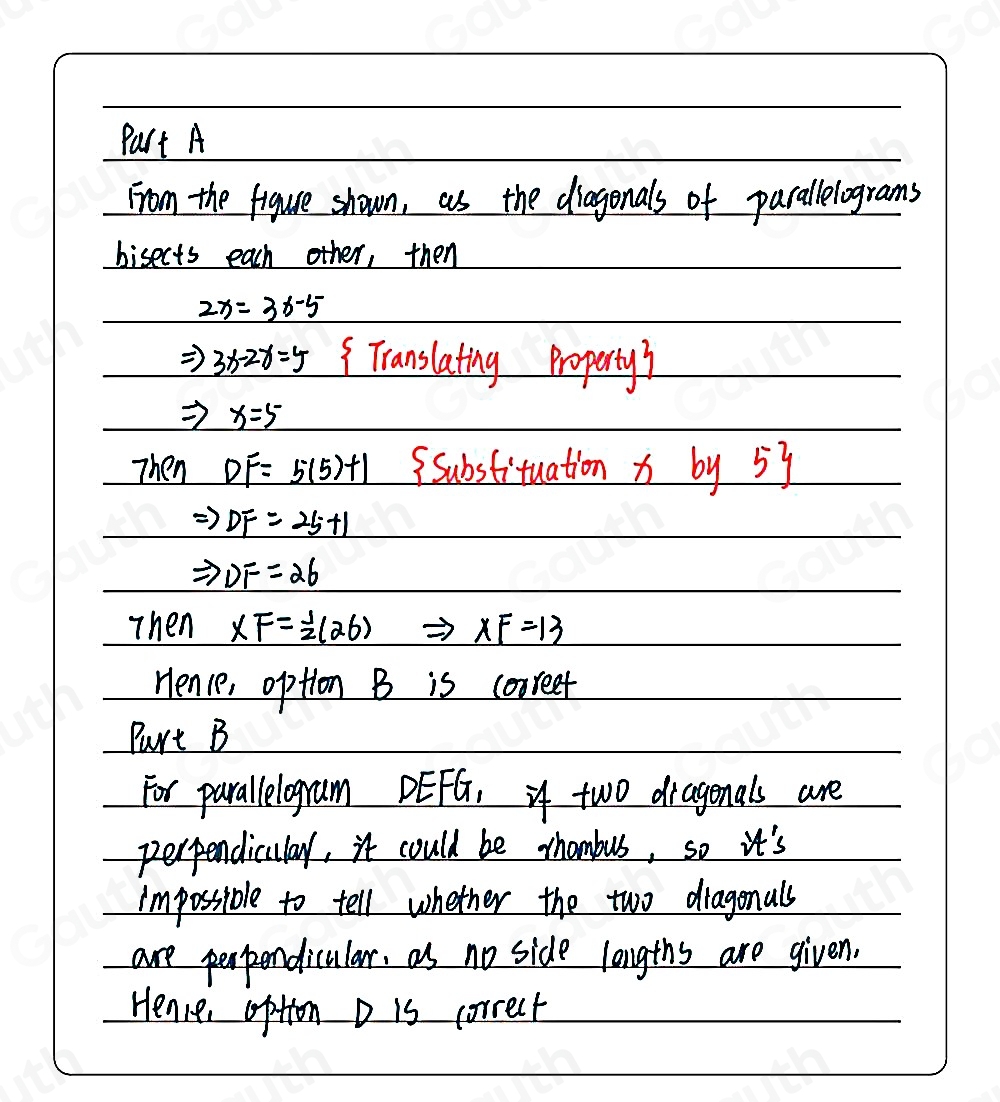 Part A
From the figure shown, as the diagonals of parallelograms
bisects each other, then
2x = 3x-5
⇒ 3x-2x=5 {Translating Property}
⇒ x=5
Then DF= 5(5)+1 {Substituation x by 5}
⇒ DF = 25+1
⇒ DF = 26
Then XF=½(26) ⇒ XF=13
Hence, option B is correct
Part B
For parallelogram DEFG, if two diagonals are
perpendicular, it could be rhombus, so it's
impossible to tell whether the two diagonals
are perpendicular. as no side lengths are given.
Hence, option D is correct